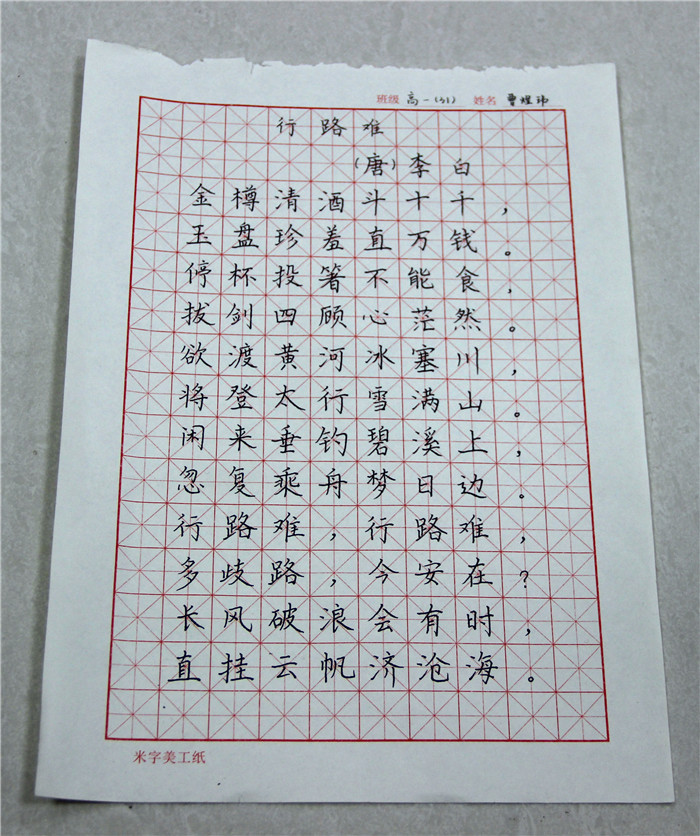 班级 高一(31) 姓名 曹煜玮
行路难
(唐)李白
金樽清酒斗十千，
玉盘珍羞直万钱。
停杯投箸不能食，
拔剑四顾心茫然。
欲渡黄河冰塞川，
将登太行雪满山。
闲来垂钓碧溪上，
忽复乘舟梦日边。
行路难，行路难，
多歧路，今安在？
长风破浪会有时，
直挂云帆济沧海。
米字美工纸